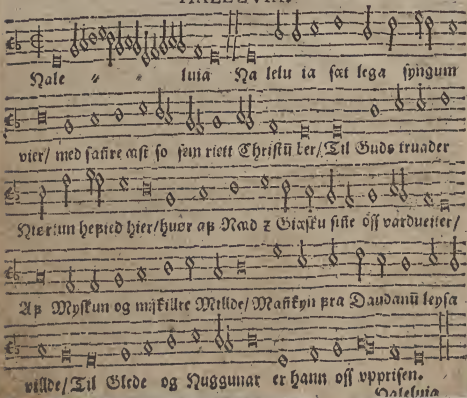 HALLELVIA.
Hale " " luia Ha lelu ia sæt lega syngum
vier/ med sañre æst so sem riett Christū ler/ Til Guds truader
hier/ huør aþ Naad z Giæsku sine oss vardueiter/
Aþ Myskun og mikillre Millde/ Mañkyn þra Daudanū leysa
villde/ Til Glede og Huggunar er hann oss vpprisen.
Haleluia